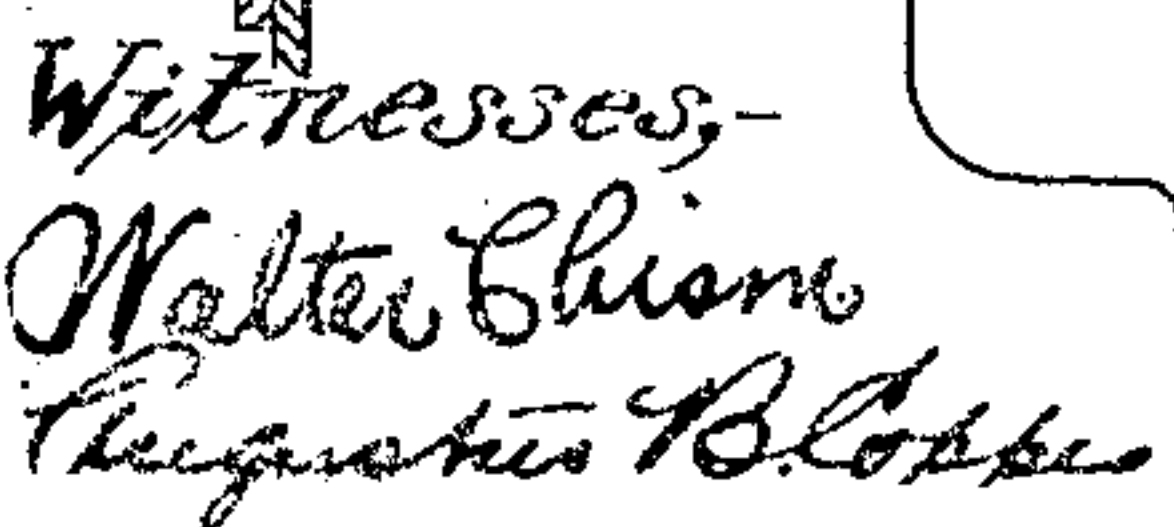 Witnesses,-
Walter Chism
Augustus B. Coppes